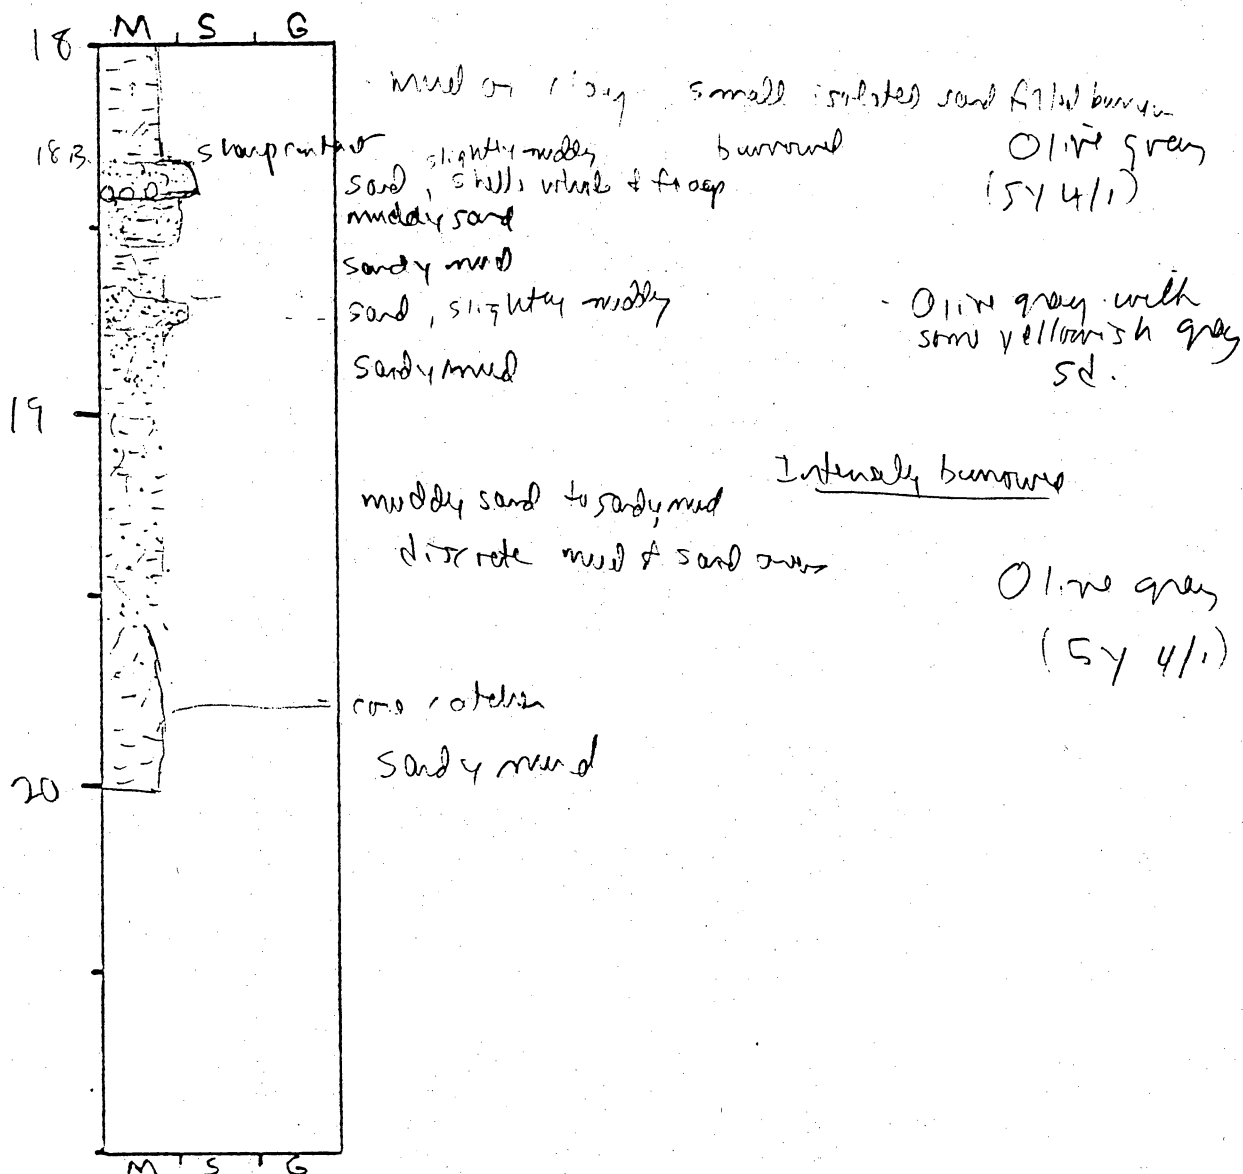 M S G
18
mud or clay small isolated sand filled burrows
18.3 sharp contact slightly muddy burrowed Olive gray
sand, shells whole & frags (5Y 4/1)
muddy sand
sandy mud
sand, slightly muddy Olive gray with
some yellowish gray
sandy mud sd.
19
Intensely burrowed
muddy sand to sandy mud
discrete mud & sand
Olive gray
(5Y 4/1)
core catcher
sandy mud
20
M S G